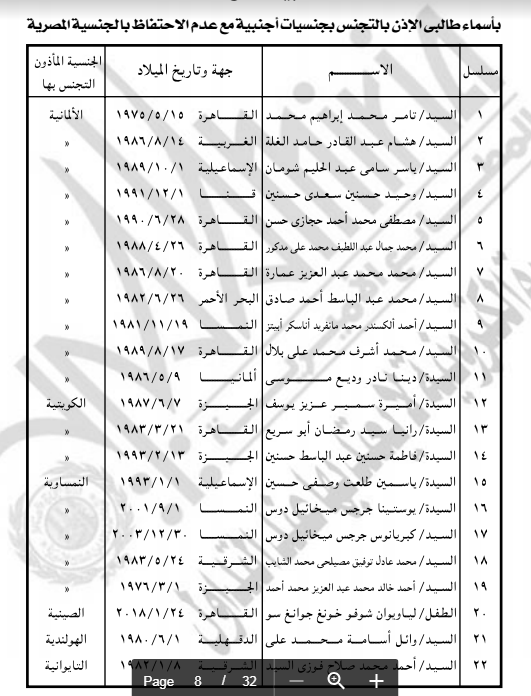 بأسماء طالبى الإذن بالتجنس بجنسيات أجنبية مع عدم الاحتفاظ بالجنسية المصرية
مسلسل الاســــــم جهة وتاريخ الميلاد الجنسية المأذون التجنس بها
١ السيد/ تامر محمد إبراهيم محمد القــاهرة ١٩٧٥/٥/١٥ الألمانية
٢ السيد/ هشام عبد القادر حامد الغلة الغربيـة ١٩٨٦/٨/١٤ »
٣ السيد/ ياسر سامى عبد الحليم شومان الإسماعيلية ١٩٨٩/١٠/١ »
٤ السيد/ وحيد حسنين سعدى حسنين قـــنـــا ١٩٩١/١٢/١ »
٥ السيد/ مصطفى محمد أحمد حجازى حسن القــاهرة ١٩٩٠/٦/٢٨ »
٦ السيد/ محمد جمال عبد اللطيف محمد على مدكور القــاهرة ١٩٨٨/٤/٢٦ »
٧ السيد/ محمد محمد عبد العزيز عمارة القــاهرة ١٩٨٦/٨/٢٠ »
٨ السيد/ محمد عبد الباسط أحمد صادق البحر الأحمر ١٩٨٢/٦/٢٦ »
٩ السيد/ أحمد ألكسندر محمد مانفريد أناسكر أبيتز النمســا ١٩٨١/١١/١٩ »
١٠ السيد/ محمد أشرف محمد على بلال القــاهرة ١٩٨٩/٨/١٧ »
١١ السيدة/ دينا نادر وديع مـــوسى ألمانيــا ١٩٨٦/٥/٩ »
١٢ السيدة/ أميرة سمير عزيز يوسف الجيــزة ١٩٨٧/٦/٧ الكويتية
١٣ السيدة/ رانيا سيد رمضان أبو سريع القــاهرة ١٩٨٣/٣/٢١ »
١٤ السيدة/ فاطمة حسنين عبد الباسط حسنين الجيــزة ١٩٩٣/٢/١٣ »
١٥ السيدة/ ياسمين طلعت وصفى حسين الإسماعيلية ١٩٩٣/١/١ النمساوية
١٦ السيدة/ يوستينا جرجس ميخائيل دوس النمســا ٢٠٠١/٩/١ »
١٧ السيد/ كيريانوس جرجس ميخائيل دوس النمســا ٢٠٠٣/١٢/٣٠ »
١٨ السيد/ محمد عادل توفيق مصيلحى محمد الشايب الشرقيـة ١٩٨٣/٥/٢٤ »
١٩ السيد/ أحمد خالد محمد عبد العزيز محمد أحمد الجيــزة ١٩٧٦/٣/١ »
٢٠ الطفل/ لياويوان شوفو خونغ جوانغ سو القــاهرة ٢٠١٨/١/٢٤ الصينية
٢١ السيد/ وائل أسامة محمــد على الدقهلية ١٩٨٠/٦/١ الهولندية
٢٢ السيد/ أحمد محمد صلاح فوزى السيد الشرقيـة ١٩٨٢/١/٨ التايوانية
Page 8 / 32 — +